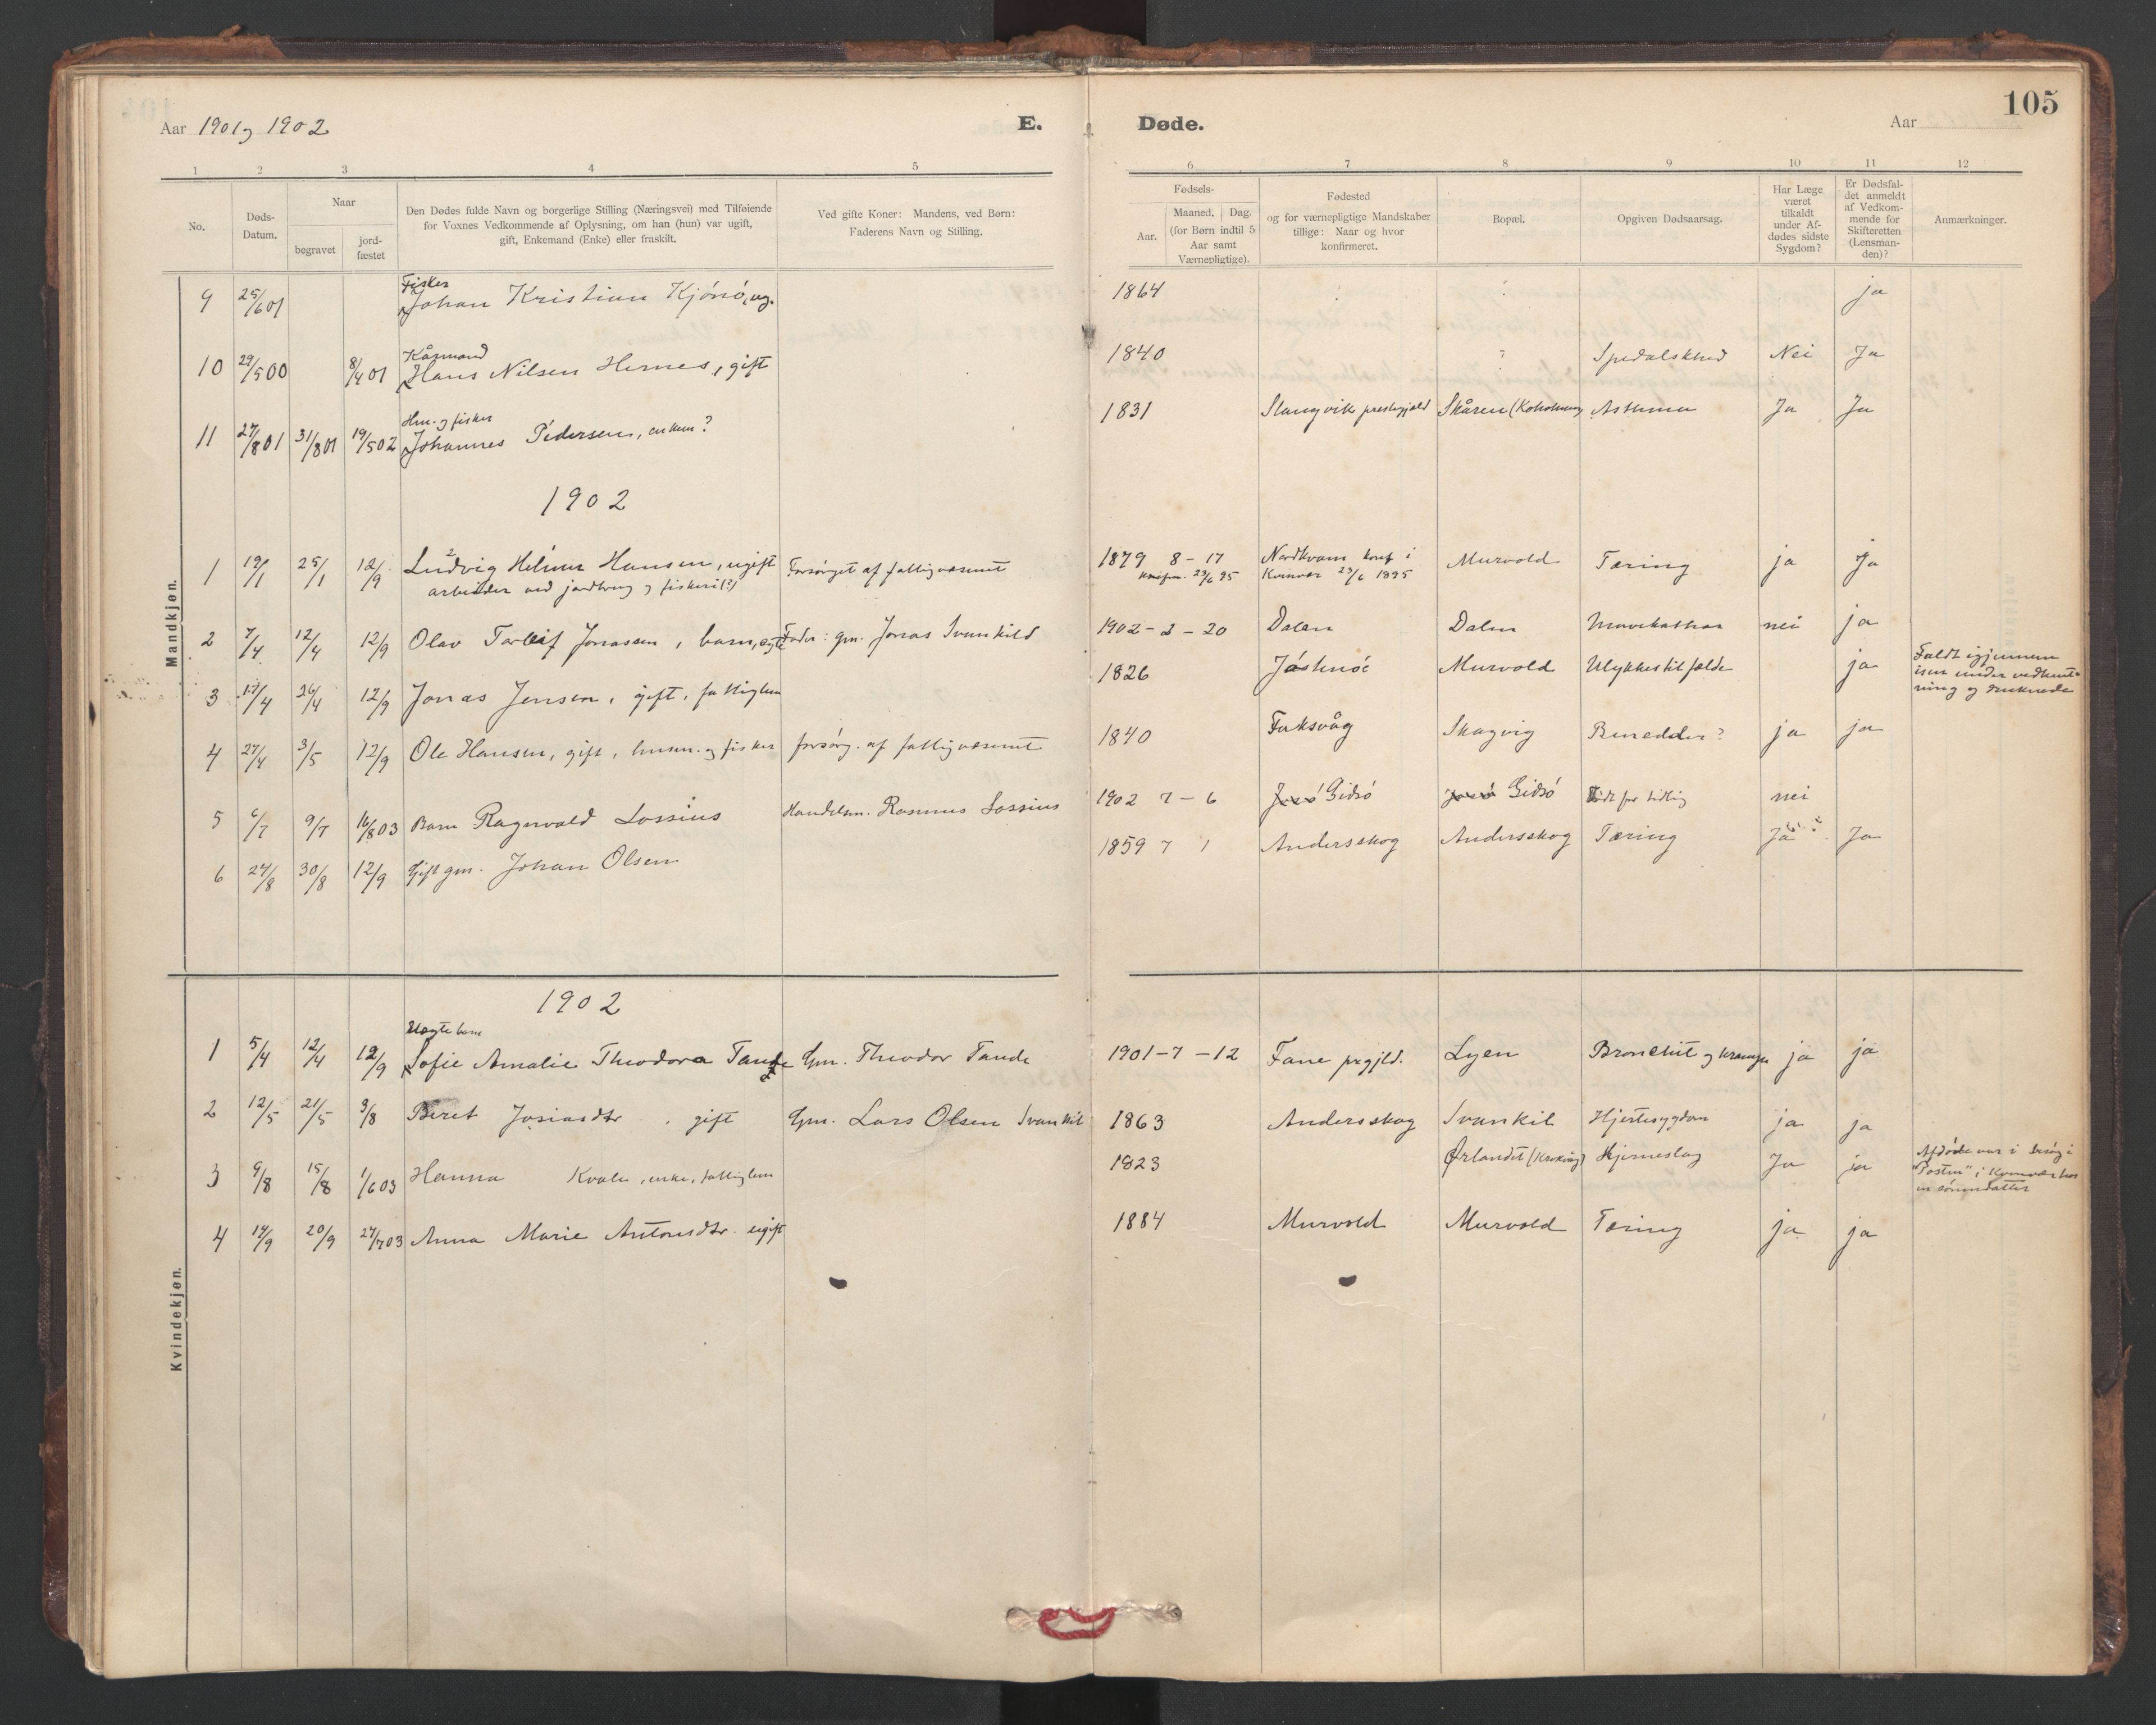 Aar 1901 og 1902
E.
Døde.
Aar
105
1 2 3 4 5 6 7 8 9 10 11 12
No.
Døds-Datum.
Naar
begravet
jord-fæstet
Den Dødes fulde Navn og borgerlige Stilling (Næringsvei) med Tilføiende
for Voxnes Vedkommende af Oplysning, om han (hun) var ugift,
gift, Enkemand (Enke) eller fraskilt.
Ved gifte Koner: Mandens, ved Børn:
Faderens Navn og Stilling.
Fødsels-
Aar.
Maaned. Dag.
(for Børn indtil 5
Aar samt
Værnepligtige).
Fødested
og for værnepligtige Mandskaber
tillige: Naar og hvor
konfirmeret.
Bopæl.
Opgiven Dødsaarsag.
Har Læge
været
tilkaldt
under Af-
dødes sidste
Sygdom?
Er Dødsfal-
det anmeldt
af Vedkom-
mende for
Skifteretten
(Lensman-
den)?
Anmærkninger.
Mandkjøn.
Fisker
9 25/6 01 Johan Kristian Kjönö, ug. 1864 ja
Kårmand
10 29/5 00 8/4 01 Hans Nilsen Hernes, gift 1840 ? Spedalskhed Nei Ja
Hm. og fisker
11 27/8 01 31/8 01 19/5 02 Johannes Pedersen, enkem? 1831 Stangvik prestegjæld Skåren Asthma Ja Ja
1902
1 19/1 25/1 12/9 Ludvig Helmer Hansen, ugift Forsörget af fattigvæsenet 1879 8 - 17 Nordkvam konf i Murvold Tæring ja Ja
arbeider ved jordbrug og fiskeri (?) konfirm. 23/6 95 Kvenvær 23/6 1895
2 7/4 12/4 12/9 Olav Torleif Jonassen, barn, egte Fader: gm. Jonas Svankild 1902 - 2 - 20 Dalen Dalen nei ja
3 17/4 26/4 12/9 Jonas Jensen, gift, fattiglem 1826 Jöstenöe Murvold Ulykkestilfælde ja Faldt igjennem
isen under vedhent-
ning og druknede
4 27/4 3/5 12/9 Ole Hansen, gift, husm. og fisker forsörg. af fattigvæsenet 1840 Faksvåg Skagvig Benedder? ja ja
5 6/7 9/7 16/8 03 Barn Ragnvald Lossius Handelsm. Rasmus Lossius 1902 7 - 6 Gidsö Gidsö Född for tidlig nei
6 24/8 30/8 12/9 Gift gm. Johan Olsen 1859 7 1 Andersskog Andersskog Tæring Ja Ja
Kvindekjøn.
1902
Uegte barn
1 5/4 12/4 12/9 Sofie Amalie Theodora Tande Gm. Theodor Tande 1901 - 7 - 12 Fane prgjld. Lyen Bronchit og krampe ja ja
2 12/5 21/5 3/8 Beret Josiasdtr, gift Gm. Lars Olsen Svankil 1863 Andersskog Svankil Hjertesygdom ja ja
3 9/8 15/8 1/6 03 Hanna Kvale, enke, fattiglem 1823 Ørlandet Hjerneslag Ja ja Afdöde var i besög i
"Postan" i Kvenvær hos
en sönnedatter
4 14/9 20/9 27/7 03 Anna Marie Antonsdtr. ugift 1884 Murvold Murvold Tæring ja ja